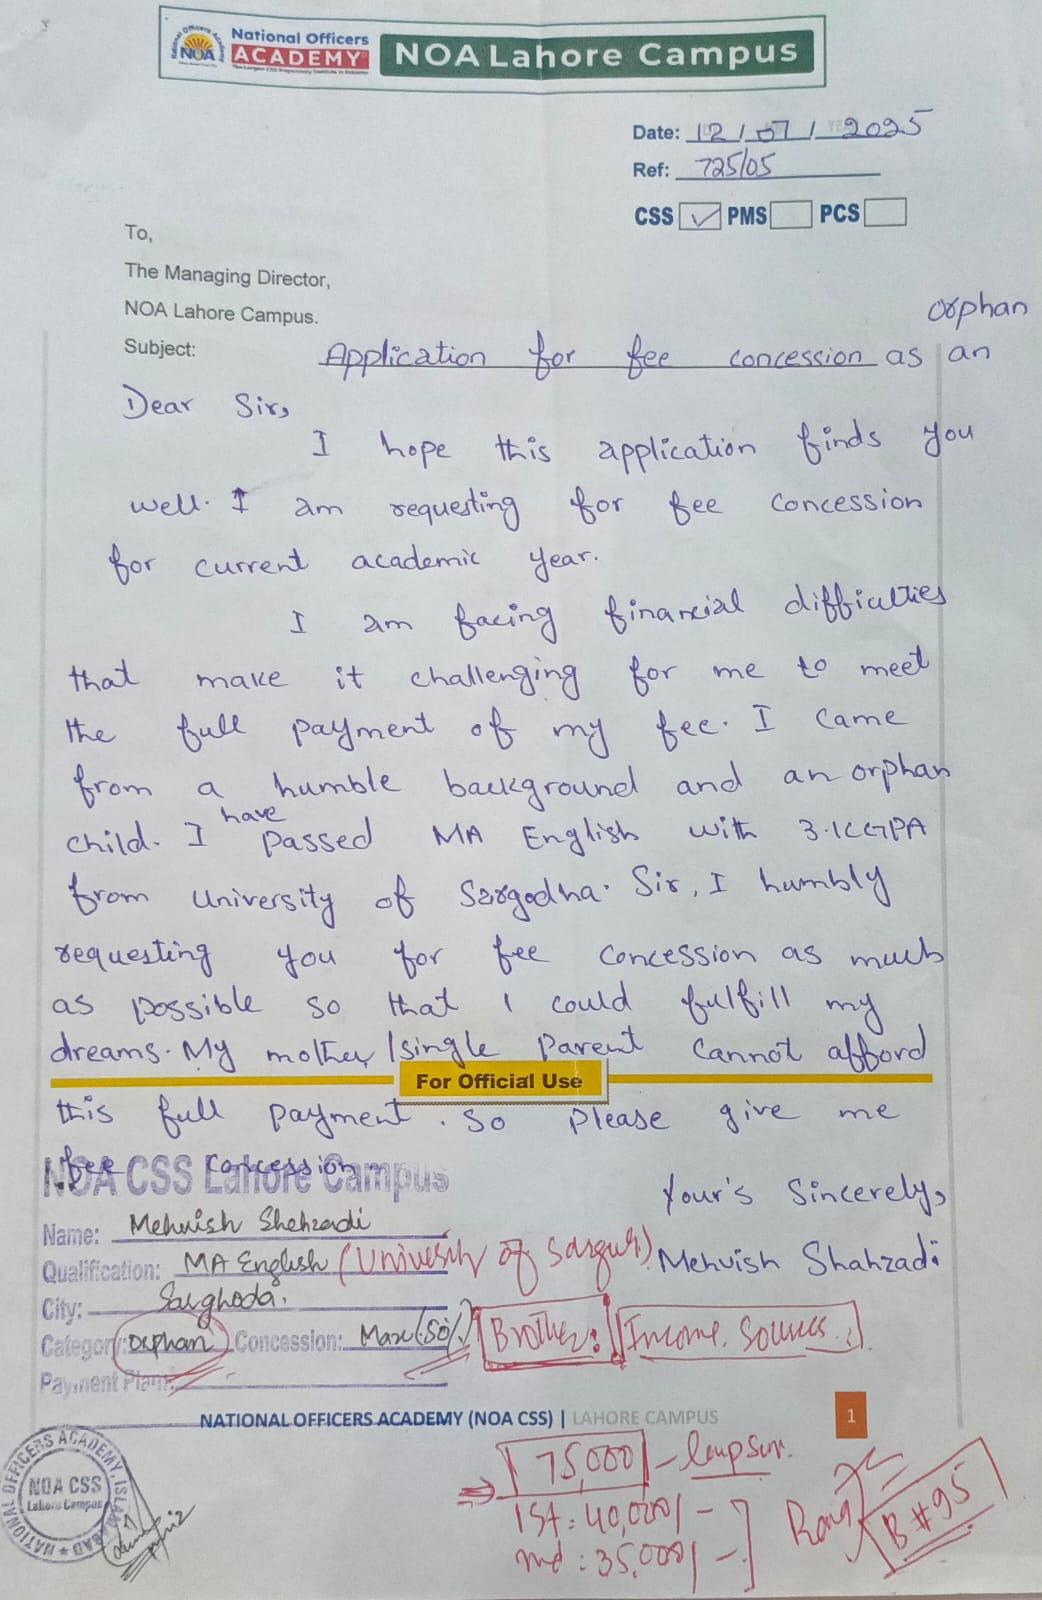 National Officers
ACADEMY
NOA
NOA Lahore Campus
Date: 12/07/2025
Ref: 725/05
CSS ✓ PMS PCS
To,
The Managing Director,
NOA Lahore Campus.
orphan
Subject: Application for fee concession as an
Dear Sir,
I hope this application finds you
well. I am requesting for fee concession
for current academic year.
I am facing financial difficulties
that make it challenging for me to meet
the full payment of my fee. I came
from a humble background and an orphan
have
child. I passed MA English with 3.1CGPA
from University of Sargodha. Sir, I humbly
requesting you for fee concession as much
as possible so that I could fulfill my
dreams. My mother/single parent cannot afford
For Official Use
this full payment. So please give me
fee concession.
NOA CSS Lahore Campus
Your's Sincerely,
Name: Mehvish Shehzadi
Qualification: MA English (University of Mehvish Shahzadi
City: Sarghoda.
Category: orphan Concession: Max (50%) Brother: Income Sources.
Payment Plan:
NATIONAL OFFICERS ACADEMY (NOA CSS) | LAHORE CAMPUS 1
NATIONAL OFFICERS ACADEMY, ISLAMABAD
NOA CSS
Lahore Campus
75,000/- lumpsum.
1st: 40,000/-
2nd: 35,000/-
B#95